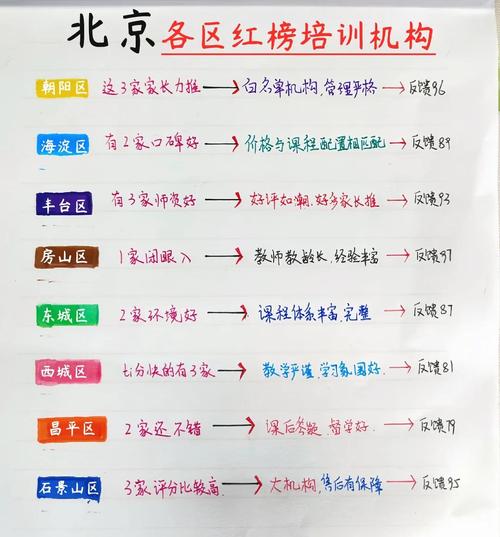 北京各区红榜培训机构
朝阳区 这3家家长力推 → 白名单机构,管理严格 → 反馈96
海淀区 有2家口碑好 → 价格与课程配置相匹配 → 反馈89
丰台区 有3家师资好 → 好评如潮.好多家长推 → 反馈93
房山区 1家闭眼入 → 教师教龄长,经验丰富 → 反馈97
东城区 2家环境好 → 课程体系丰富,完整 → 反馈87
西城区 ti分快的有3家 → 教学严谨,学习氛围好. → 反馈81
昌平区 2家还不错 → 课后答疑,督学好. → 反馈79
石景山区 3家评分比较高. → 大机构,售后有保障 → 反馈95